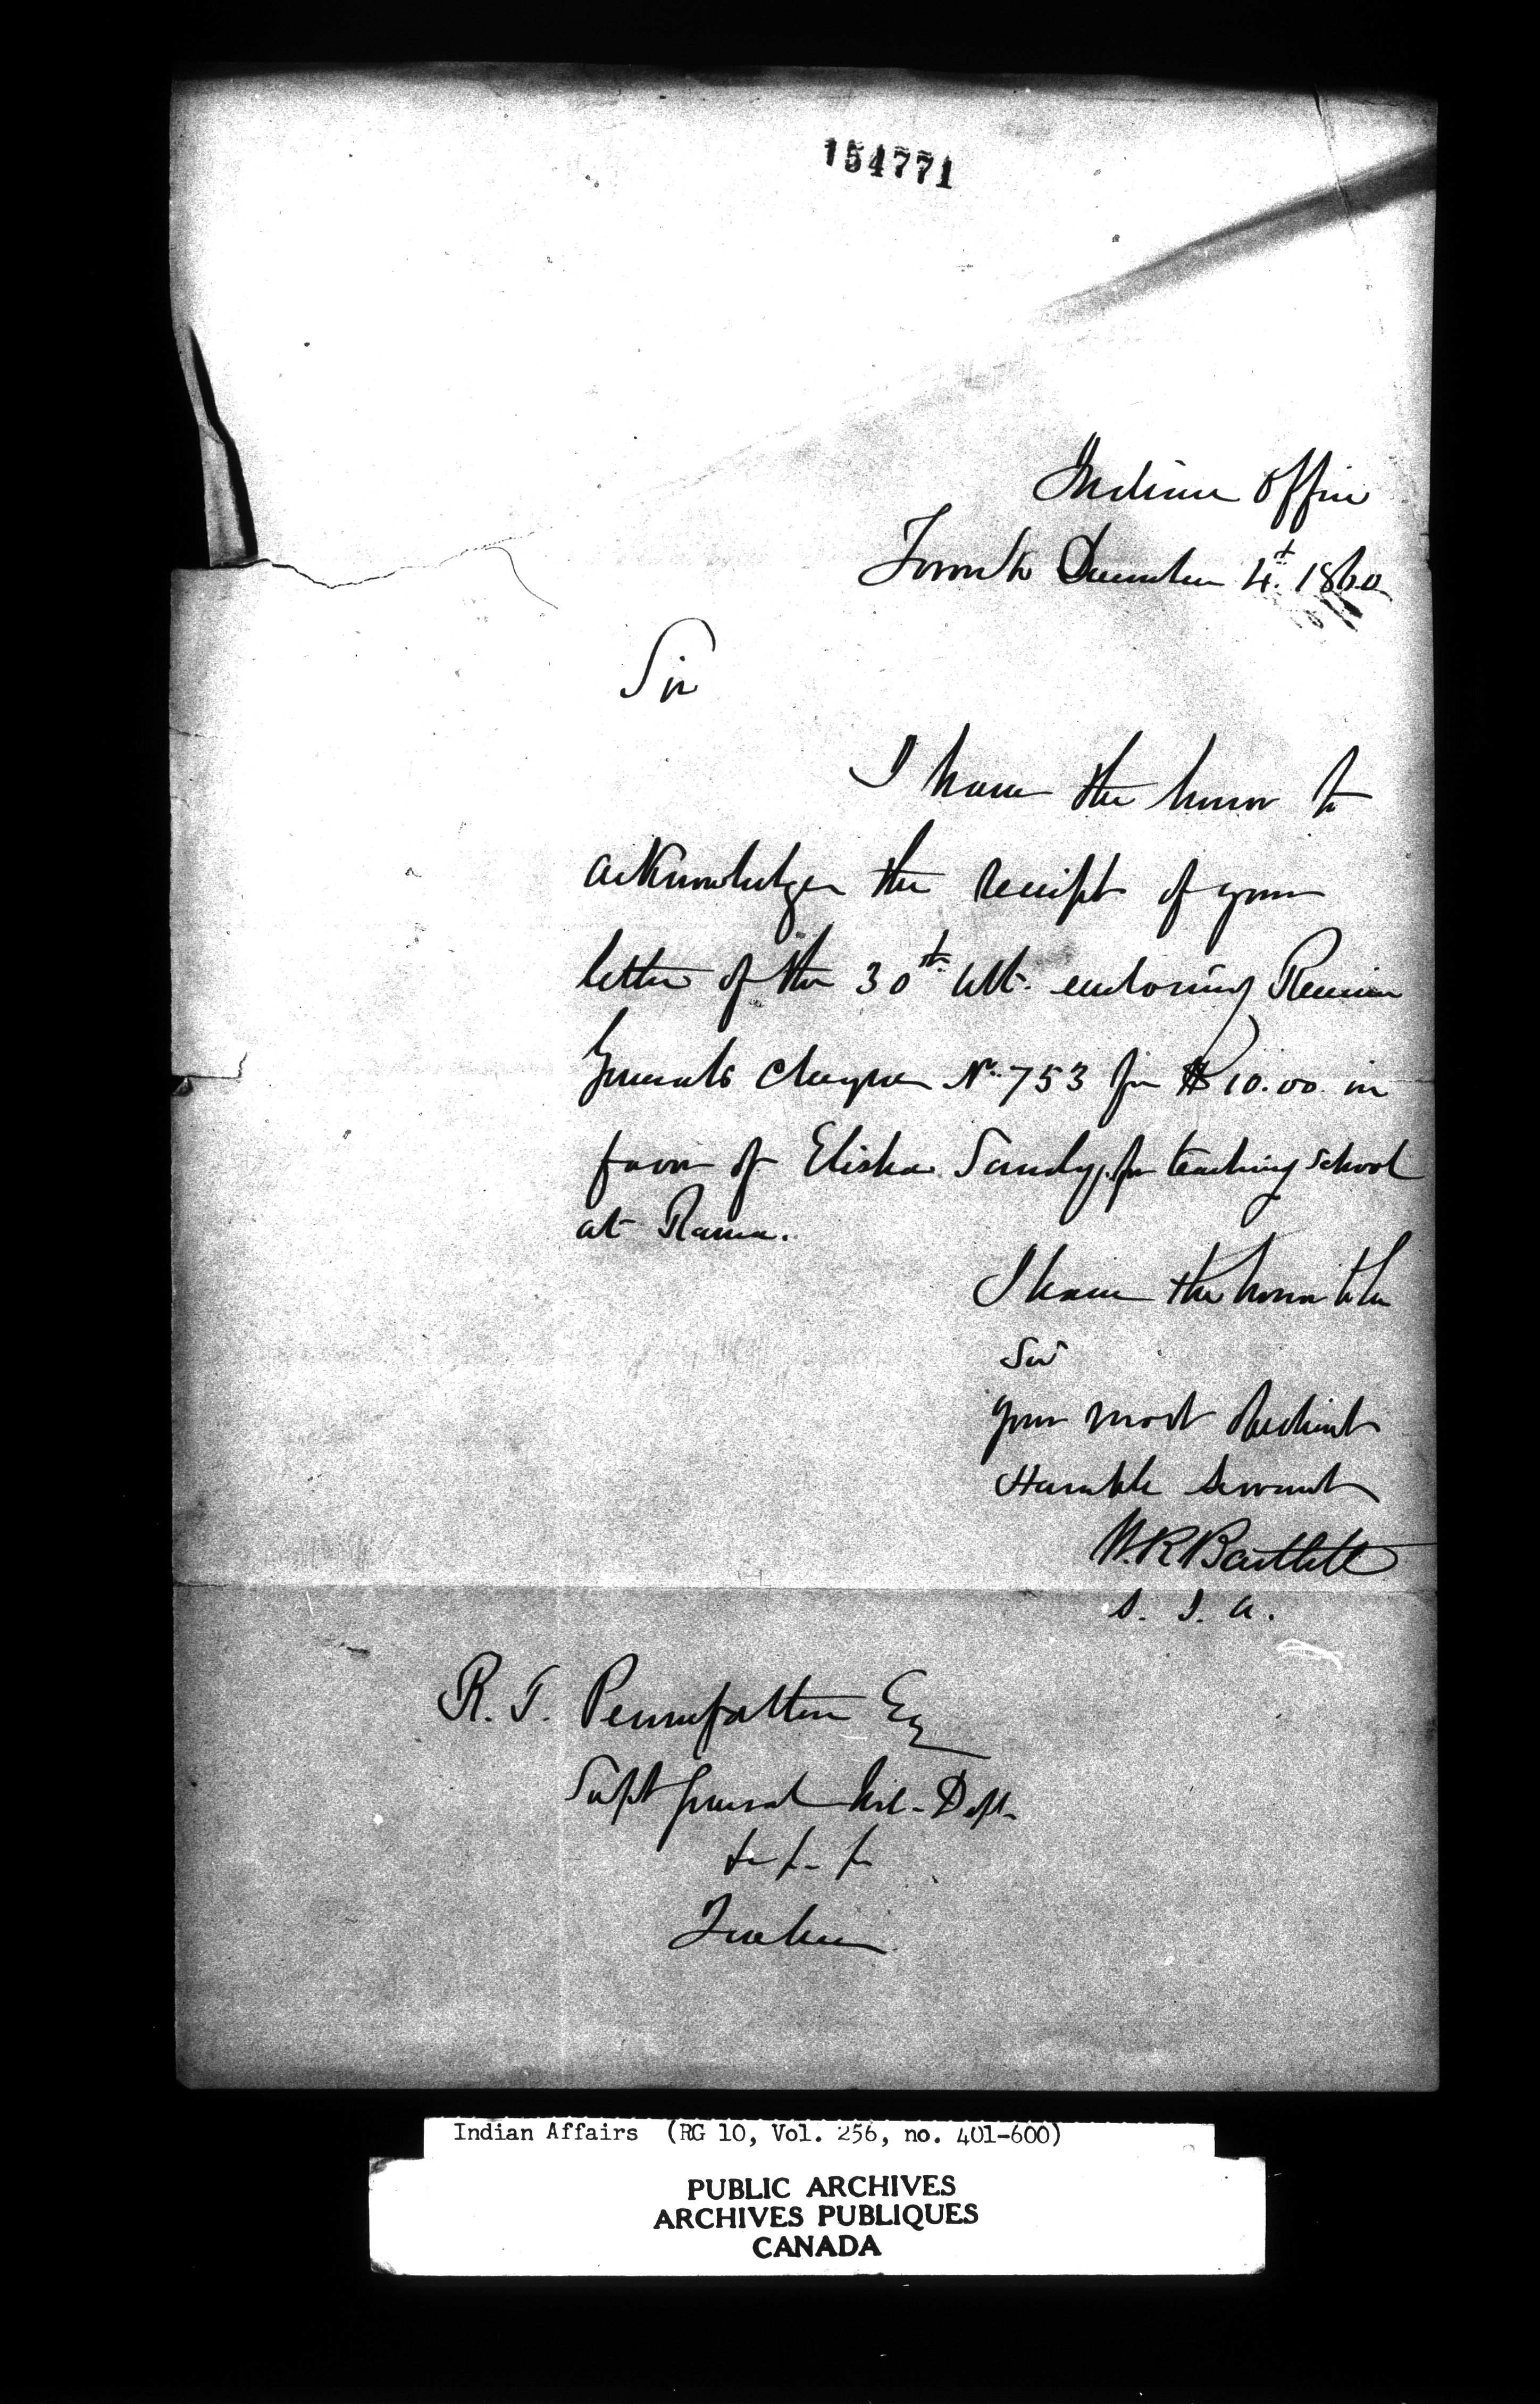 154771
Indian Office
Toronto December 4th 1860
Sir
I have the honor to
acknowledge the receipt of your
letter of the 30th Ult. enclosing Receiver
Generals Cheque No. 753 for $10.00 in
favor of Elisha Sandy, for teaching School
at Rama.
I have the honor to be
Sir
Your most Obedient
Humble Servant
W.R. Bartlett
S. I. A.
R. T. Pennefather Esq
Supt General Ind. Dept.
&c &c &c
Quebec
Indian Affairs (RG 10, Vol. 256, no. 401-600)
PUBLIC ARCHIVES
ARCHIVES PUBLIQUES
CANADA